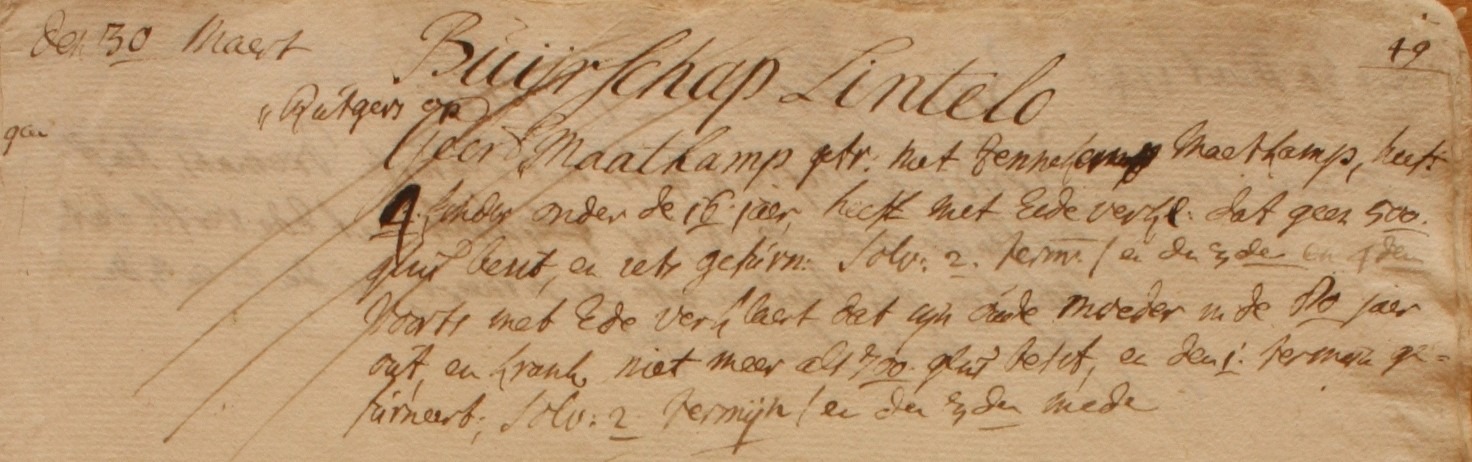 den 30 Maert
49
Buijrschap Lintelo
Rutgers op
Geert Maatkamp getr. met Maetkamp, heeft
4 kinder onder de 16 jaer, heeft met Eede verkl: dat geen 500.
besit, en iets gefurn: Solv: 2. term: / en den 3den en 4den
Voorts met Ede verklaert dat sijn oude moeder in de 80 jaer
out, en krank niet meer als 700. besit, en den 1. termijn ge=
furneert; Solv: 2 termijn / en den 3den mede